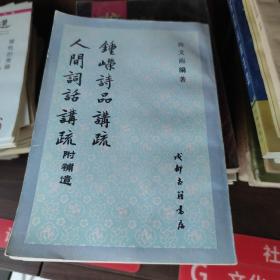 許文雨編著
鍾嶸詩品講疏
人間詞話講疏附補遺
成都古籍書店
社
G 文化